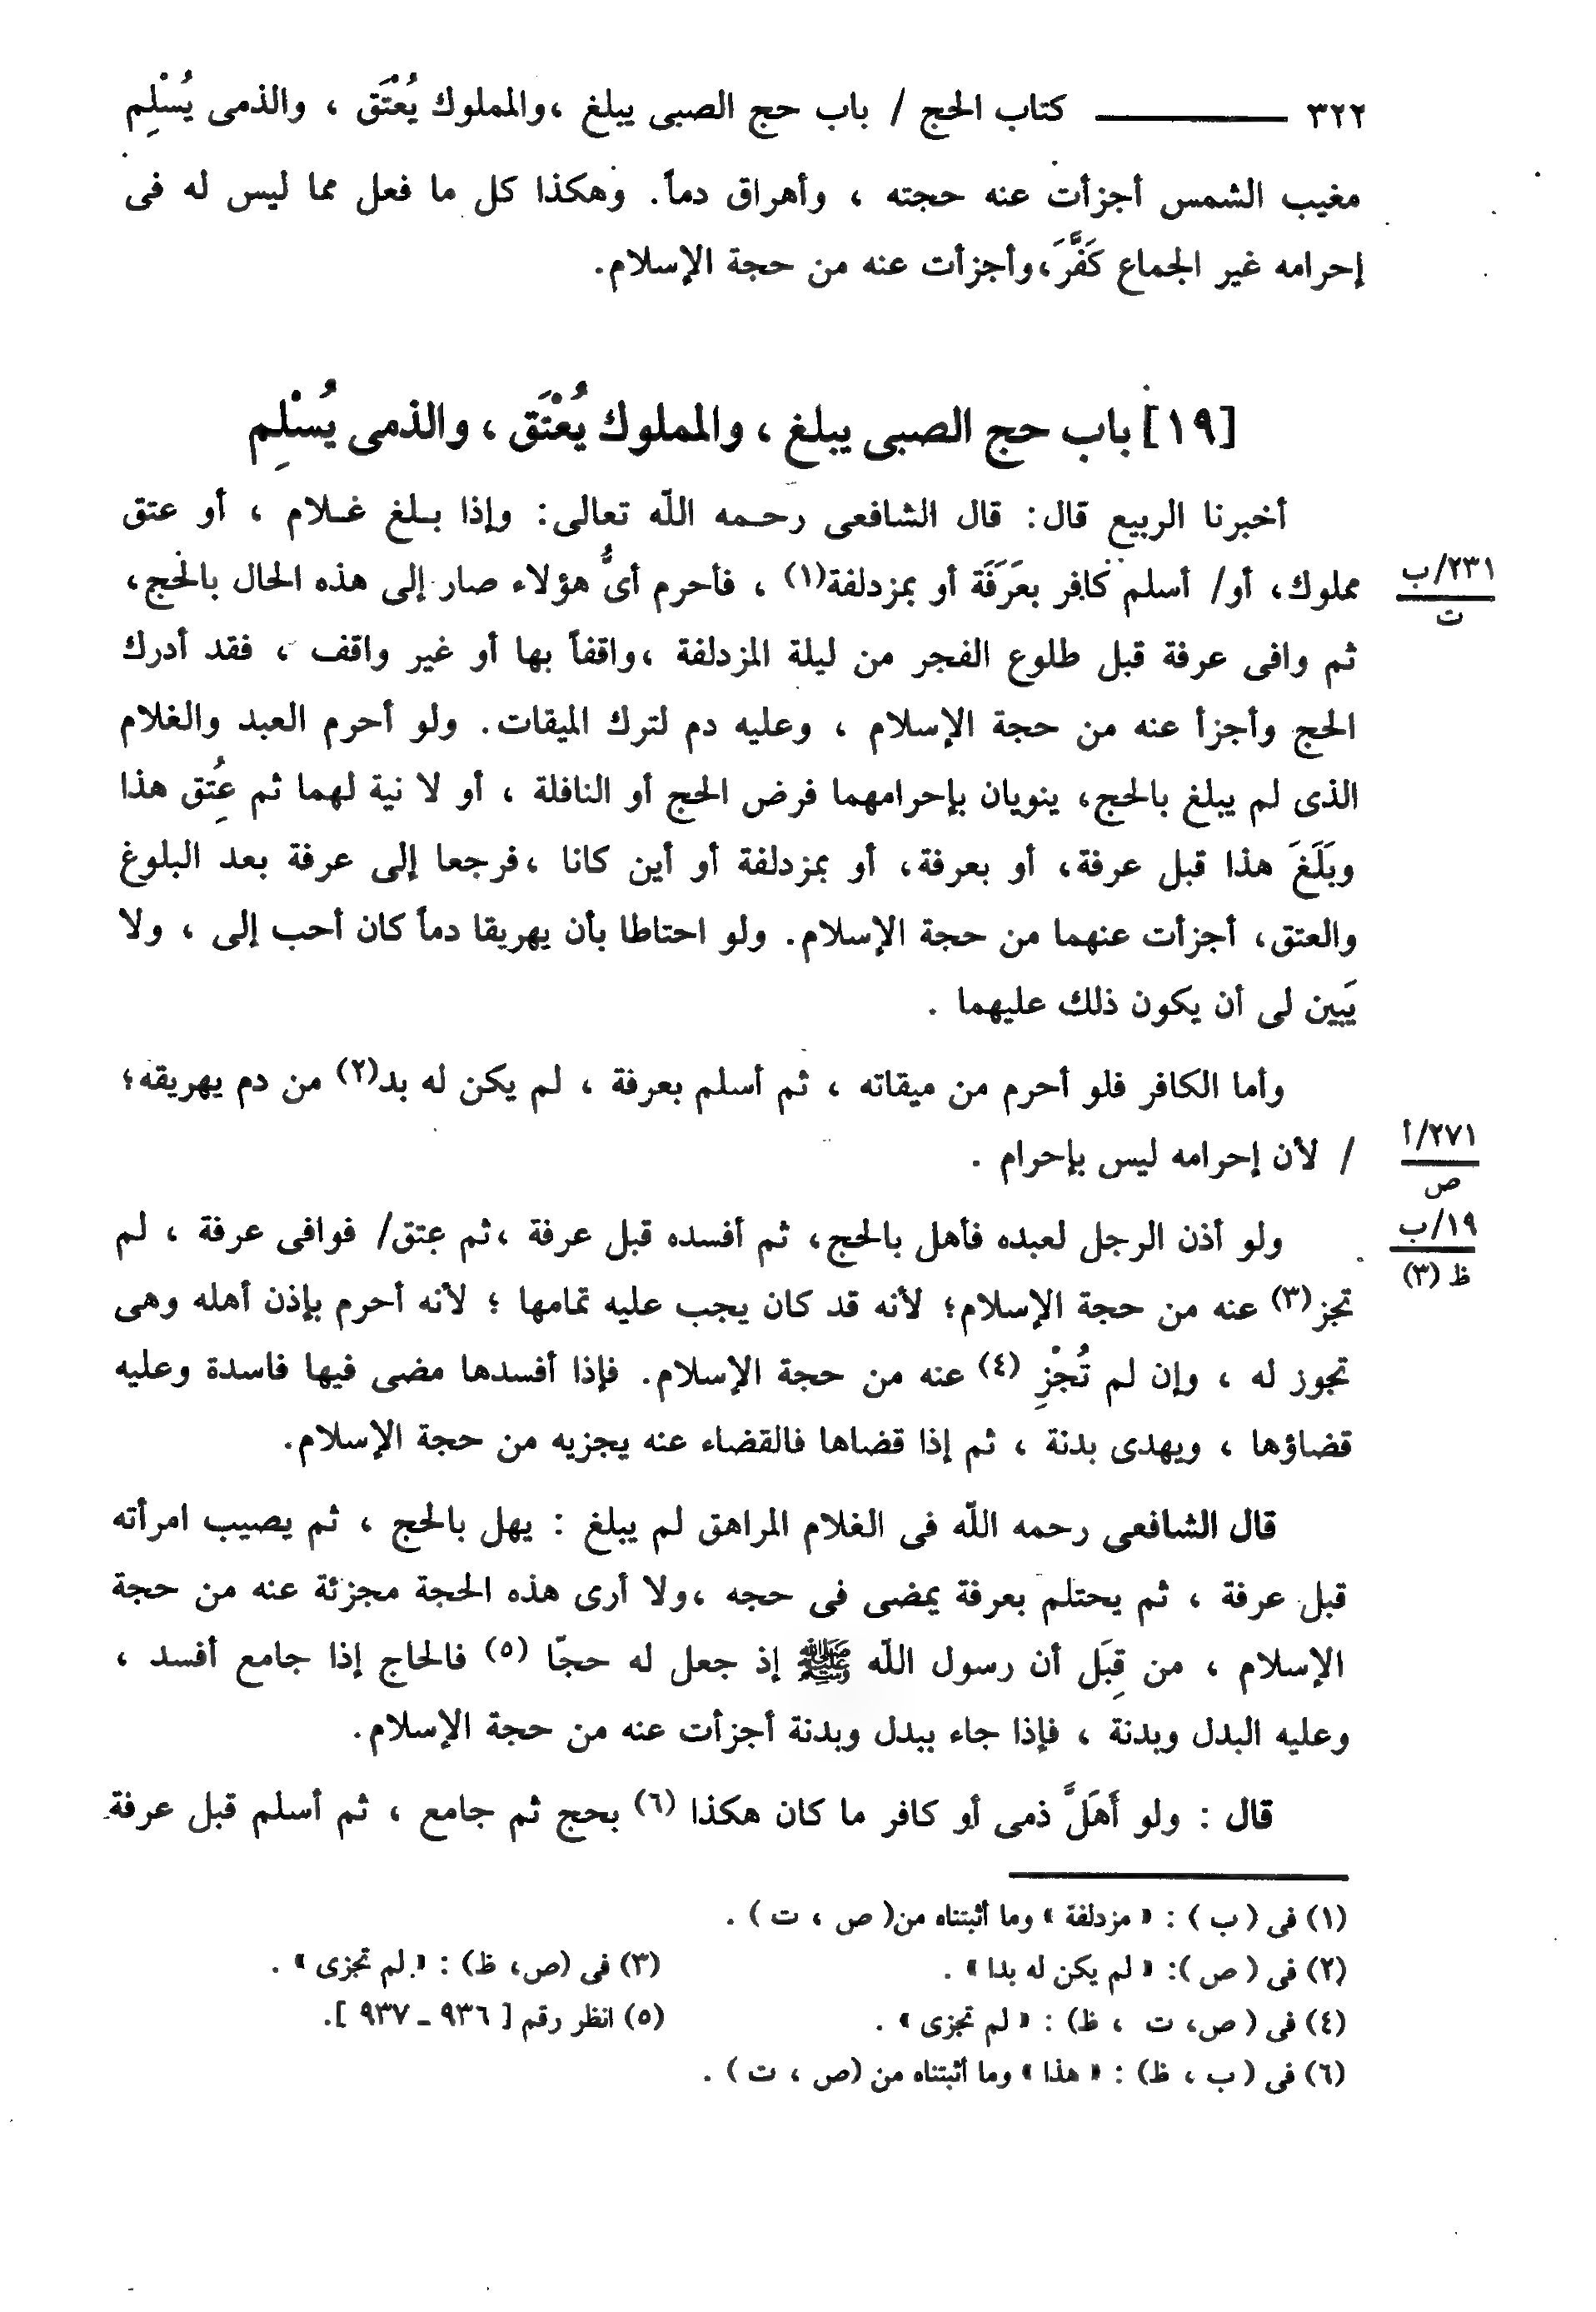 ٣٢٢ ــــــــ كتاب الحج / باب حج الصبى يبلغ ،والمملوك يُعْتَق ، والذمى يُسْلِم
مغيب الشمس أجزأت عنه حجته ، وأهراق دماً. وهكذا كل ما فعل مما ليس له فى
إحرامه غير الجماع كَفَّرَ،وأجزأت عنه من حجة الإسلام.
[١٩] باب حج الصبى يبلغ ، والمملوك يُعْتَق ، والذمى يُسْلِم
أخبرنا الربيع قال: قال الشافعى رحـمه اللّه تعالى: وإذا بـلغ غـلام ، أو عتق
مملوك، أو/ أسلم كافر بعَرَفَة أو بمزدلفة(١) ، فأحرم أىُّ هؤلاء صار إلى هذه الحال بالحج،
٢٣١/ب
ت
ثم وافى عرفة قبل طلوع الفجر من ليلة المزدلفة ،واقفاً بها أو غير واقف ، فقد أدرك
الحج وأجزأ عنه من حجة الإسلام ، وعليه دم لترك الميقات. ولو أحرم العبد والغلام
الذى لم يبلغ بالحج، ينويان بإحرامهما فرض الحج أو النافلة ، أو لا نية لهما ثم عُتِق هذا
وبَلَغَ هذا قبل عرفة، أو بعرفة، أو بمزدلفة أو أين كانا ،فرجعا إلى عرفة بعد البلوغ
والعتق، أجزأت عنهما من حجة الإسلام. ولو احتاطا بأن يهريقا دماً كان أحب إلى ، ولا
يَبين لى أن يكون ذلك عليهما .
وأما الكافر فلو أحرم من ميقاته ، ثم أسلم بعرفة ، لم يكن له بد(٢) من دم يهريقه؛
/ لأن إحرامه ليس بإحرام .
٢٧١/أ
ص
ولو أذن الرجل لعبده فأهل بالحج، ثم أفسده قبل عرفة ،ثم عتق/ فوافى عرفة ، لم
١٩/ب
ظ (٣)
تجز(٣) عنه من حجة الإسلام؛ لأنه قد كان يجب عليه تمامها ؛ لأنه أحرم بإذن أهله وهى
تجوز له ، وإن لم تُجْزِ (٤) عنه من حجة الإسلام. فإذا أفسدها مضى فيها فاسدة وعليه
قضاؤها ، ويهدى بدنة ، ثم إذا قضاها فالقضاء عنه يجزيه من حجة الإسلام.
قال الشافعى رحمه اللّه فى الغلام المراهق لم يبلغ : يهل بالحج ، ثم يصيب امرأته
قبل عرفة ، ثم يحتلم بعرفة يمضى فى حجه ،ولا أرى هذه الحجة مجزئة عنه من حجة
الإسلام ، من قِبَل أن رسول اللّه ﷺ إذ جعل له حجّا (٥) فالحاج إذا جامع أفسد ،
وعليه البدل وبدنة ، فإذا جاء ببدل وبدنة أجزأت عنه من حجة الإسلام.
قال : ولو أَهَلَّ ذمى أو كافر ما كان هكذا (٦) بحج ثم جامع ، ثم أسلم قبل عرفة
(١) فى ( ب ) : « مزدلفة » وما أثبتناه من( ص ، ت ) .
(٢) فى ( ص ): « لم يكن له بدا » .
(٣) فى (ص، ظ) : « لم تجزى » .
(٤) فى ( ص، ت ، ظ) : « لم تجزى » .
(٥) انظر رقم [ ٩٣٦ ـ ٩٣٧ ].
(٦) فى ( ب ، ظ) : « هذا » وما أثبتناه من (ص ، ت ) .